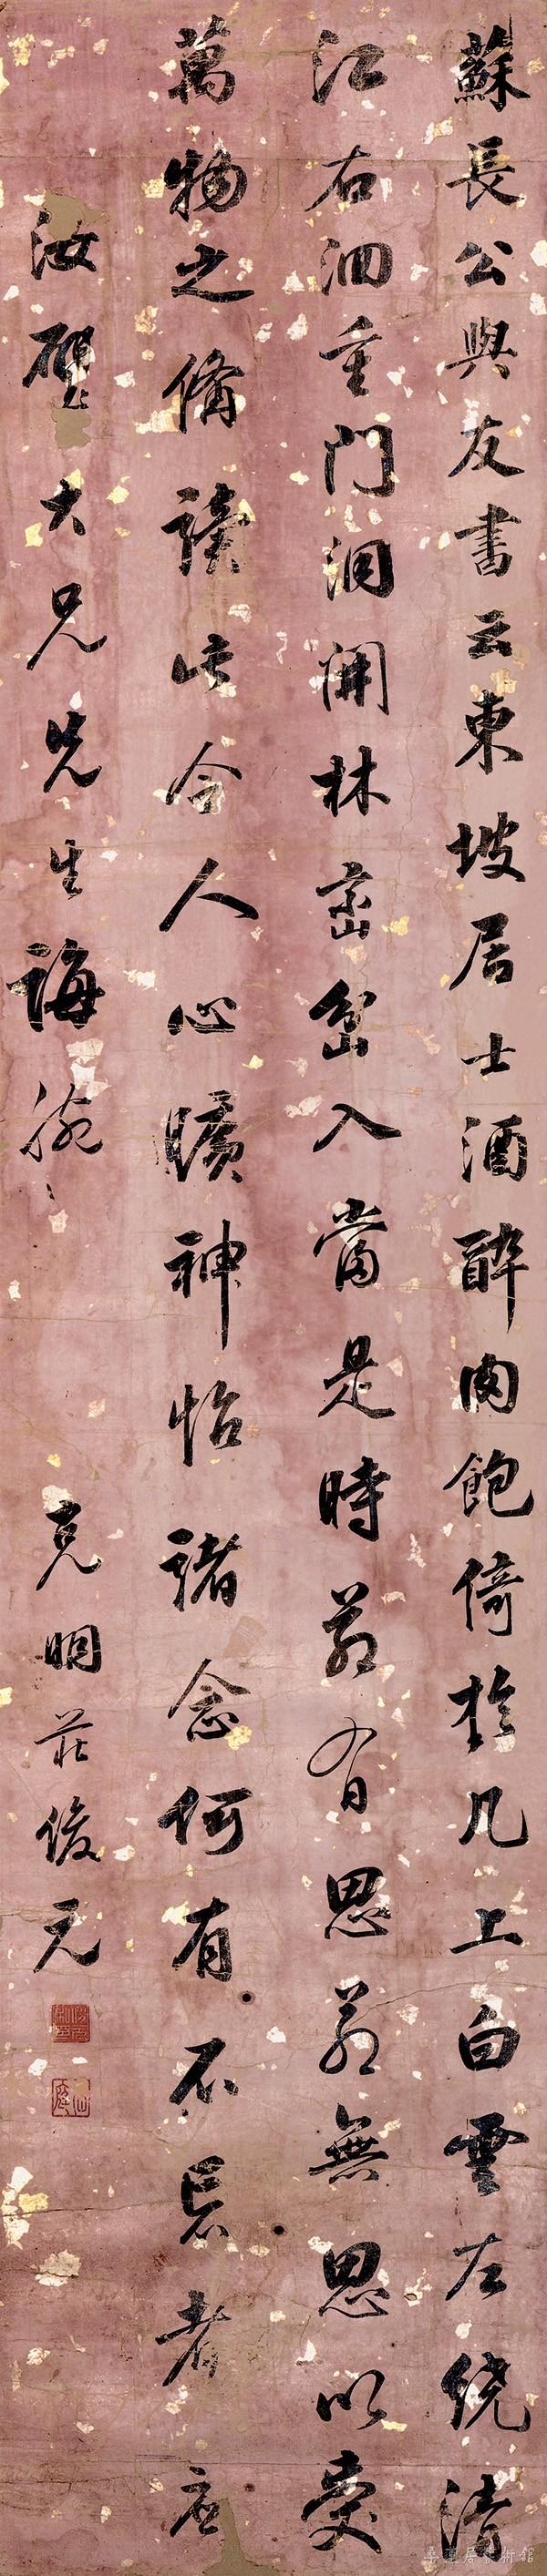 蘇長公與友書云東坡居士酒醉肉飽倚於几上白雲左繞清
江右洄重門洞開林巒岔入當是時若有思若無思以受
萬物之備讀此令人心曠神怡諸念何有不忘者應
汝璧大兄先生誨 克明莊俊元